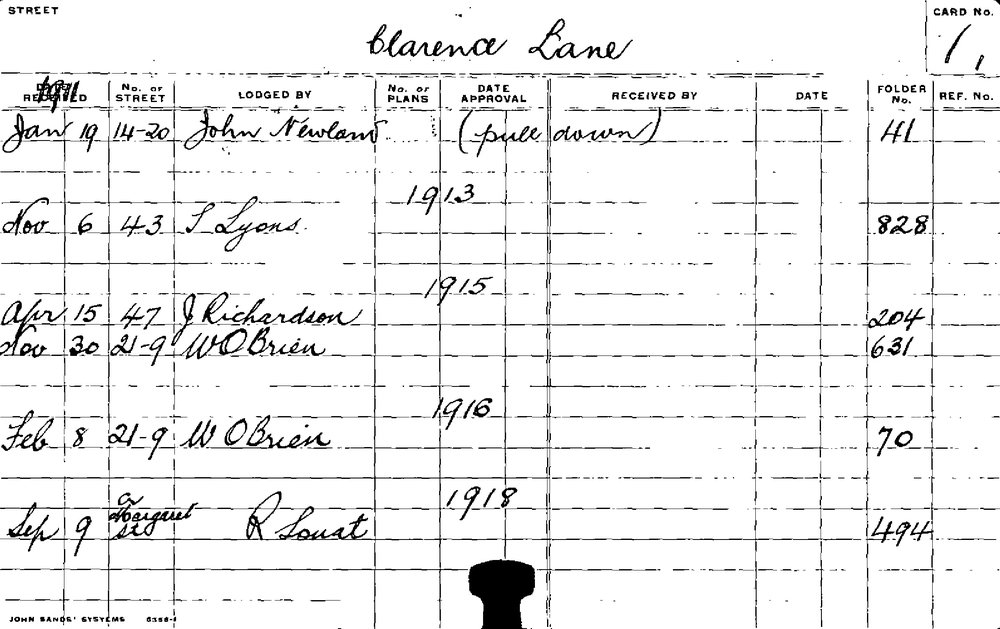 STREET
CARD No.
Clarence Lane
1,
1911
DATE RECEIVED No. OF STREET LODGED BY No. OF PLANS DATE APPROVAL RECEIVED BY DATE FOLDER No. REF. No.
Jan 19 14-20 John Newland (pull down) 41
1913
Nov 6 43 S Lyons 828
1915
Apr 15 47 J Richardson 204
Nov 30 21-9 W O Brien 631
1916
Feb 8 21-9 W O Brien 70
1918
Sep 9 Margaret St R 494
JOHN SANDS' SYSTEMS